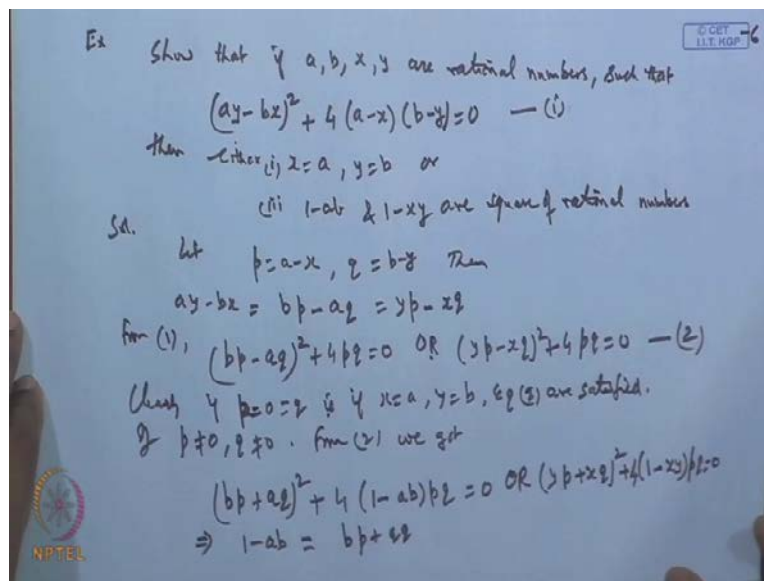 Ex Show that if a, b, x, y are rational numbers, such that
© CET
I.I.T. KGP
-6
(ay-bx)² + 4 (a-x) (b-y) = 0 — (i)
then either (i) x = a, y = b or
(ii) 1-ab & 1-xy are square of rational numbers
Sol.
Let p = a-x, q = b-y Then
ay-bx = bp-aq = yp-xq
From (1), (bp-aq)² + 4pq = 0 OR (yp-xq)² + 4pq = 0 — (2)
Clearly if p=0=q if x=a, y=b, Eq (2) are satisfied.
If p≠0, q≠0. From (2) we get
(bp+aq)² + 4 (1-ab)pq = 0 OR (yp+xq)² + 4(1-xy)pq=0
⇒ 1-ab = bp+aq
NPTEL